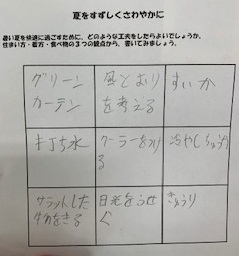 夏をすずしくさわやかに
暑い夏を快適に過ごすために、どのような工夫をしたらよいでしょうか。
住まい方・着方・食べ物の3つの観点から、書いてみましょう。
グリーン
カーテン
風とおり
を考える
すいか
打ち水
クーラーをつけ
る
冷やしちゅう
サラットした
物をきる
日光をふせ
ぐ
きゅうり